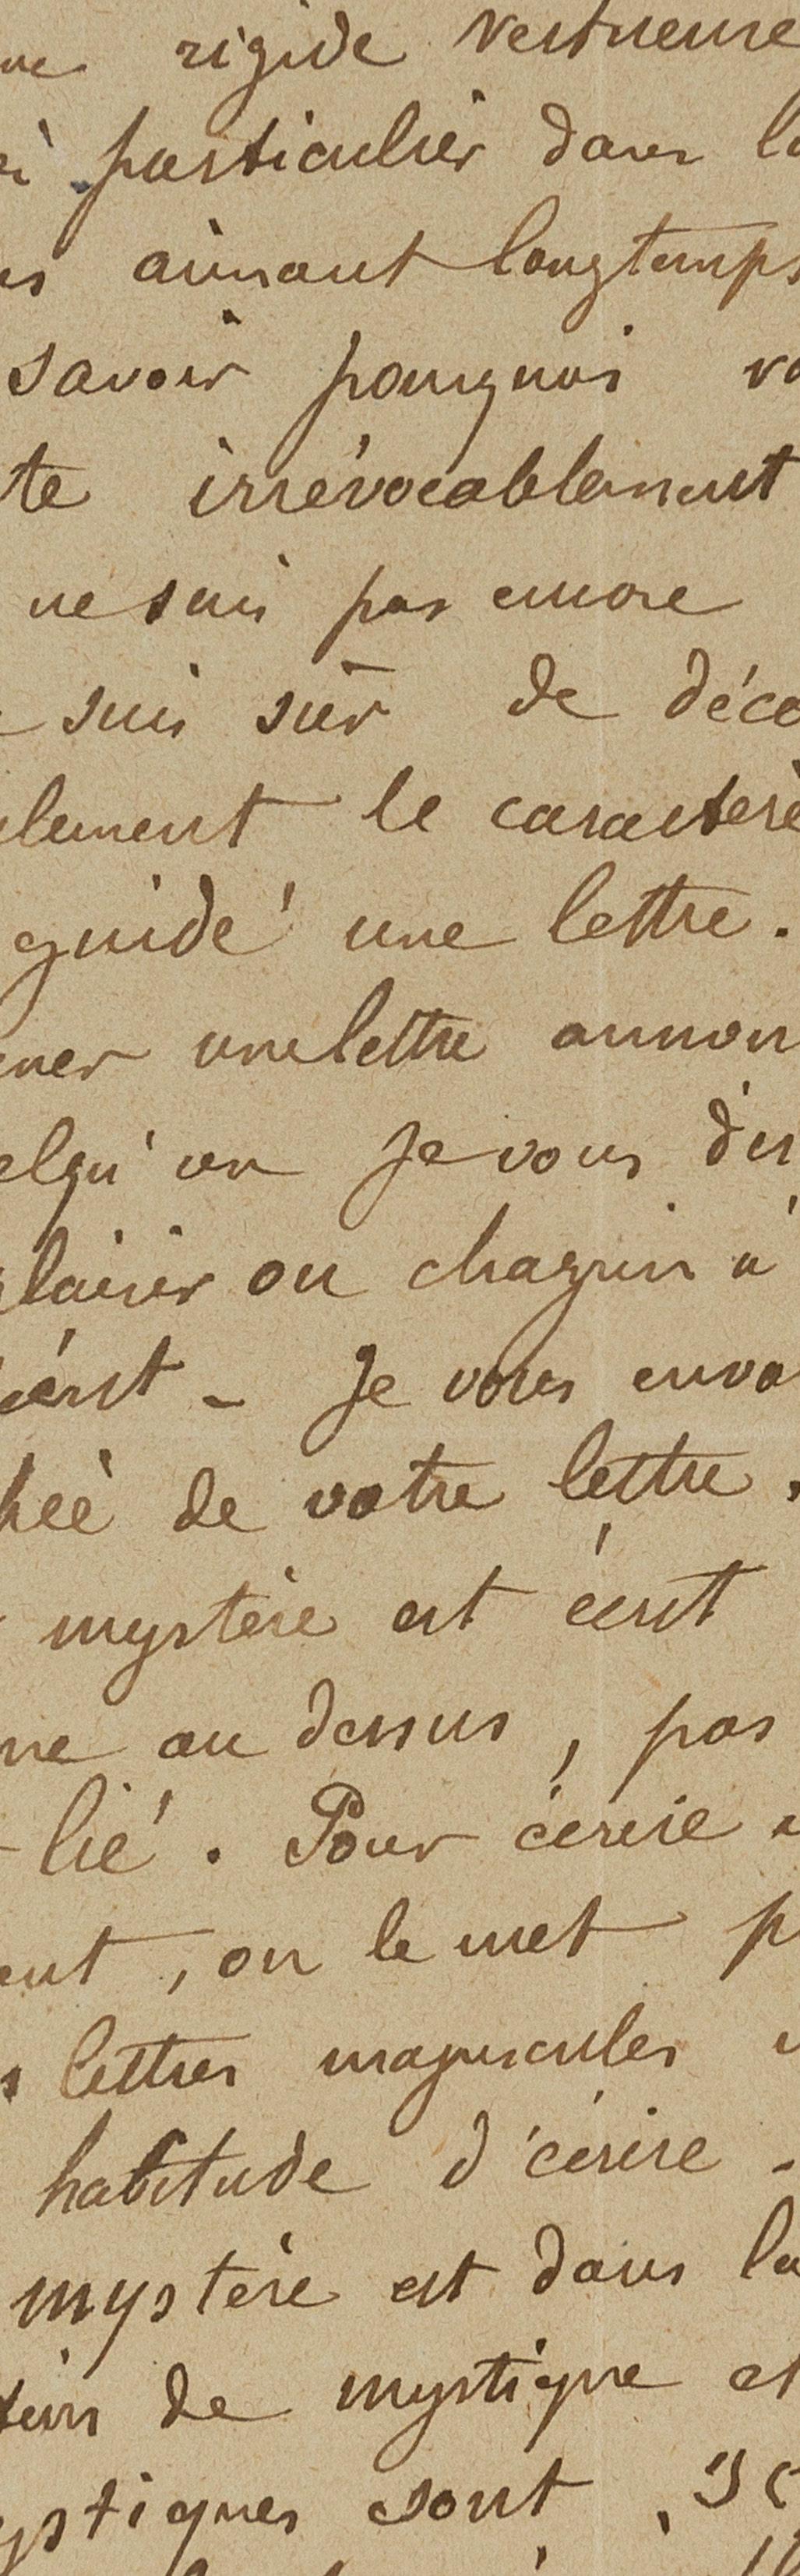 rigide vertueuse
particulier dans la
aimant longtemps
savoir pourquoi vo
te irrévocablement
ne suis pas encore
suis sûr de déco
lement le caractère
guidé une lettre.
ner une lettre annon
elqu'un Je vous dis
plaisir ou chagrin à
écrit - Je vous envo
hée de votre lettre.
mystère est écrit
ne au dessus, pas
-lié. Pour écrire
ent, on le met p
s lettres majuscules
habitude d'écrire -
mystère est dans la
de mystique et
ystiques sont